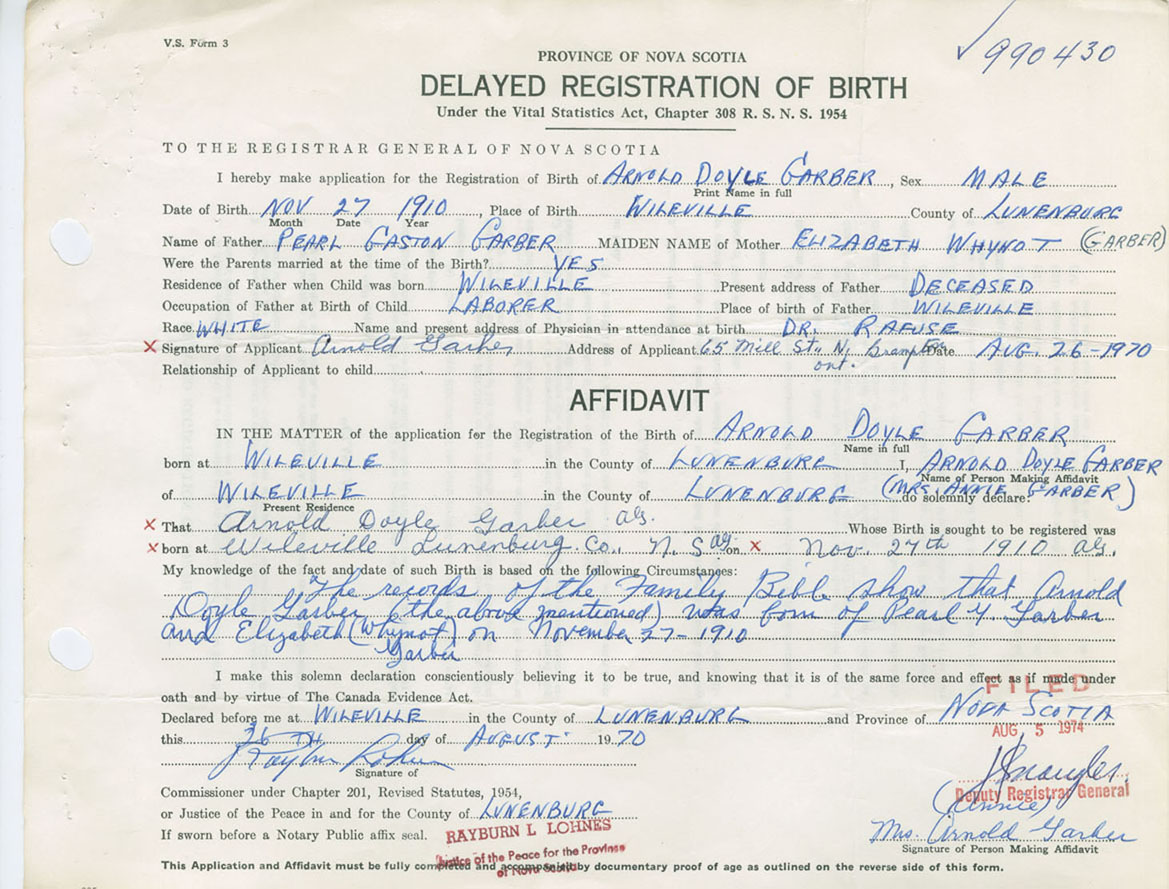 V.S. Form 3
√ 990430
PROVINCE OF NOVA SCOTIA
DELAYED REGISTRATION OF BIRTH
Under the Vital Statistics Act, Chapter 308 R. S. N. S. 1954
TO THE REGISTRAR GENERAL OF NOVA SCOTIA
I hereby make application for the Registration of Birth of ARNOLD DOYLE GARBER, Sex MALE
Print Name in full
Date of Birth NOV 27 1910, Place of Birth WILEVILLE County of LUNENBURG
Month Date Year
Name of Father PEARL GASTON GARBER MAIDEN NAME of Mother ELIZABETH WHYNOT (GARBER)
Were the Parents married at the time of the Birth? YES
Residence of Father when Child was born WILEVILLE Present address of Father DECEASED
Occupation of Father at Birth of Child LABORER Place of birth of Father WILEVILLE
Race WHITE Name and present address of Physician in attendance at birth DR. RAFUSE
X Signature of Applicant Arnold Garber Address of Applicant 65 Mill St., N. Brampton Date AUG. 26-1970
ont.
Relationship of Applicant to child
AFFIDAVIT
IN THE MATTER of the application for the Registration of the Birth of ARNOLD DOYLE GARBER
Name in full
born at WILEVILLE in the County of LUNENBURG I, ARNOLD DOYLE GARBER
Name of Person Making Affidavit
of WILEVILLE in the County of LUNENBURG (MRS. ANNIE GARBER) do solemnly declare:
Present Residence
X That Arnold Doyle Garber ag. Whose Birth is sought to be registered was
X born at Wileville Lunenburg Co., N. S. ag on X Nov. 27th 1910 ag.
My knowledge of the fact and date of such Birth is based on the following Circumstances:
The records of the Family Bible show that Arnold
Doyle Garber (the above mentioned) was born of Pearl G. Garber
and Elizabeth (Whynot) on November 27-1910
Garber
I make this solemn declaration conscientiously believing it to be true, and knowing that it is of the same force and effect as if made under
oath and by virtue of The Canada Evidence Act.
FILED
Declared before me at WILEVILLE in the County of LUNENBURG and Province of NOVA SCOTIA
AUG 5 1974
this 26TH day of AUGUST 1970
Signature of
Deputy Registrar General
Commissioner under Chapter 201, Revised Statutes, 1954,
(Annie)
or Justice of the Peace in and for the County of LUNENBURG
Mrs. Arnold Garber
If sworn before a Notary Public affix seal.
RAYBURN L LOHNES
Signature of Person Making Affidavit
Justice of the Peace for the Province
of Nova Scotia
This Application and Affidavit must be fully completed and accompanied by documentary proof of age as outlined on the reverse side of this form.